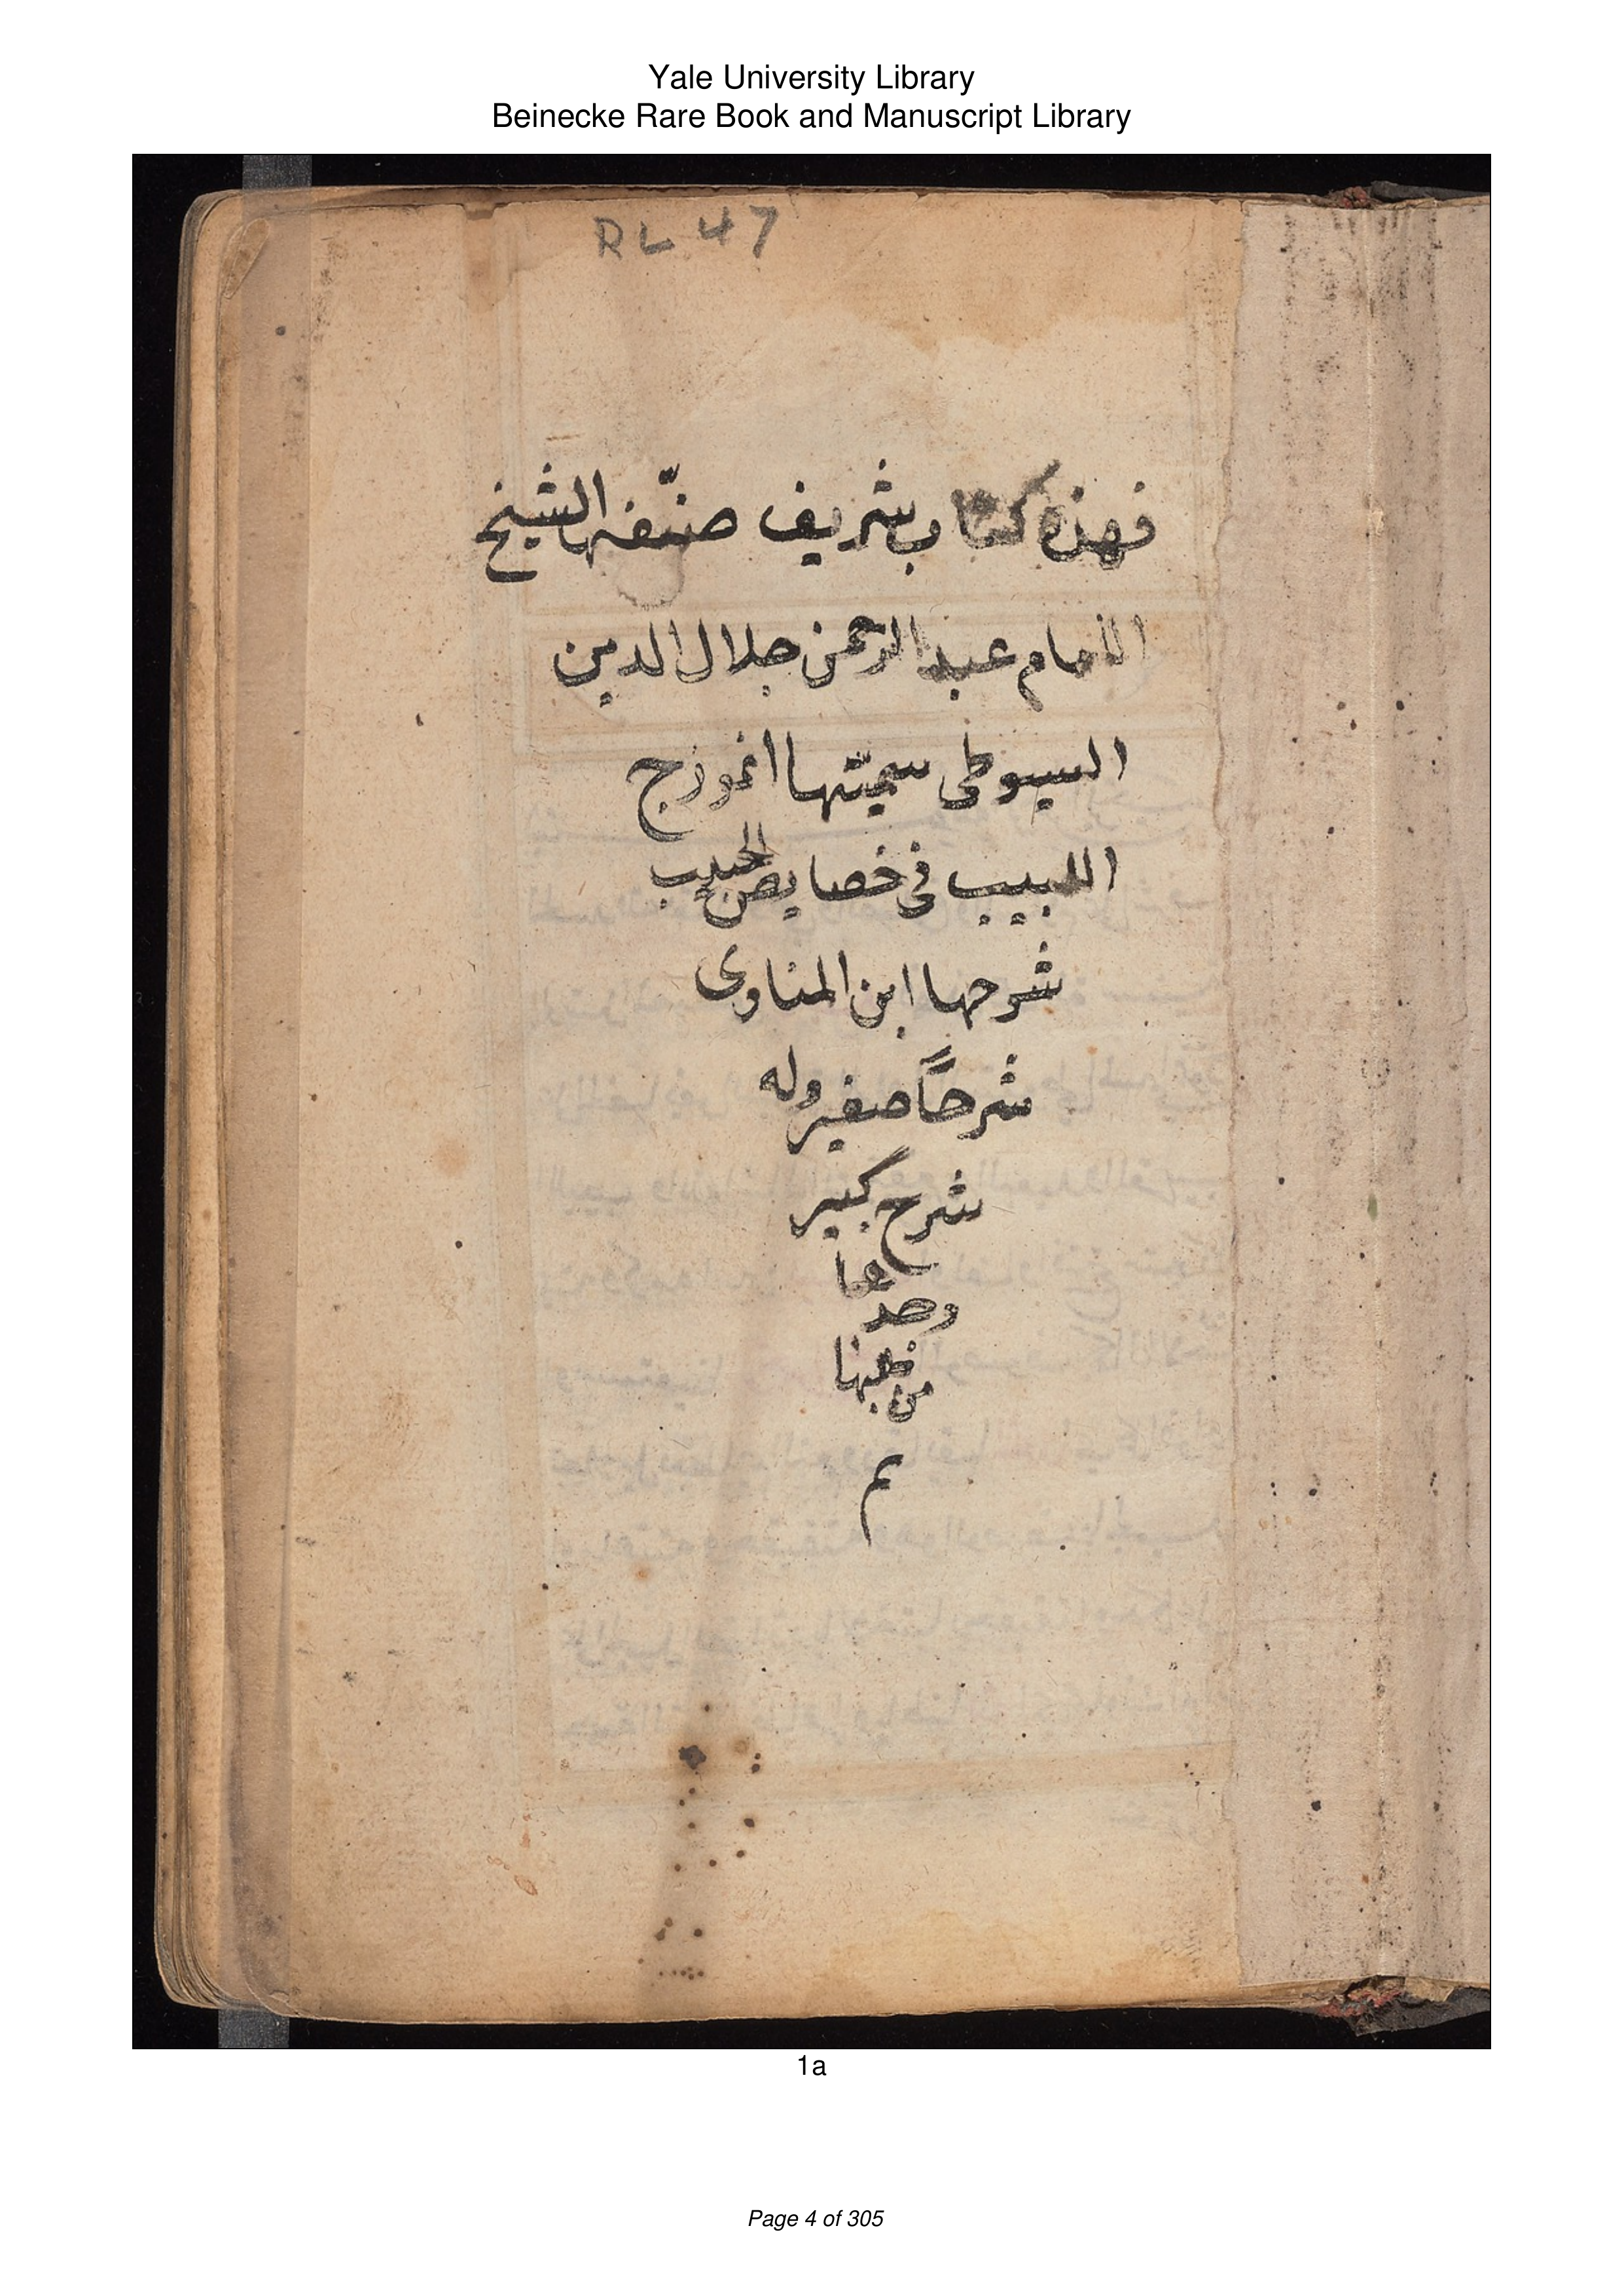 Yale University Library
Beinecke Rare Book and Manuscript Library
RL 47
فهذه كتاب شريف صنّفها الشيخ
الامام عبد الرحمن جلال الدين
السيوطى سميّتها انموزج
اللبيب في خصايص الحبيب
شرحها ابن المناوى
شرحاً صغير وله
شرح كبير
من
م
1a
Page 4 of 305